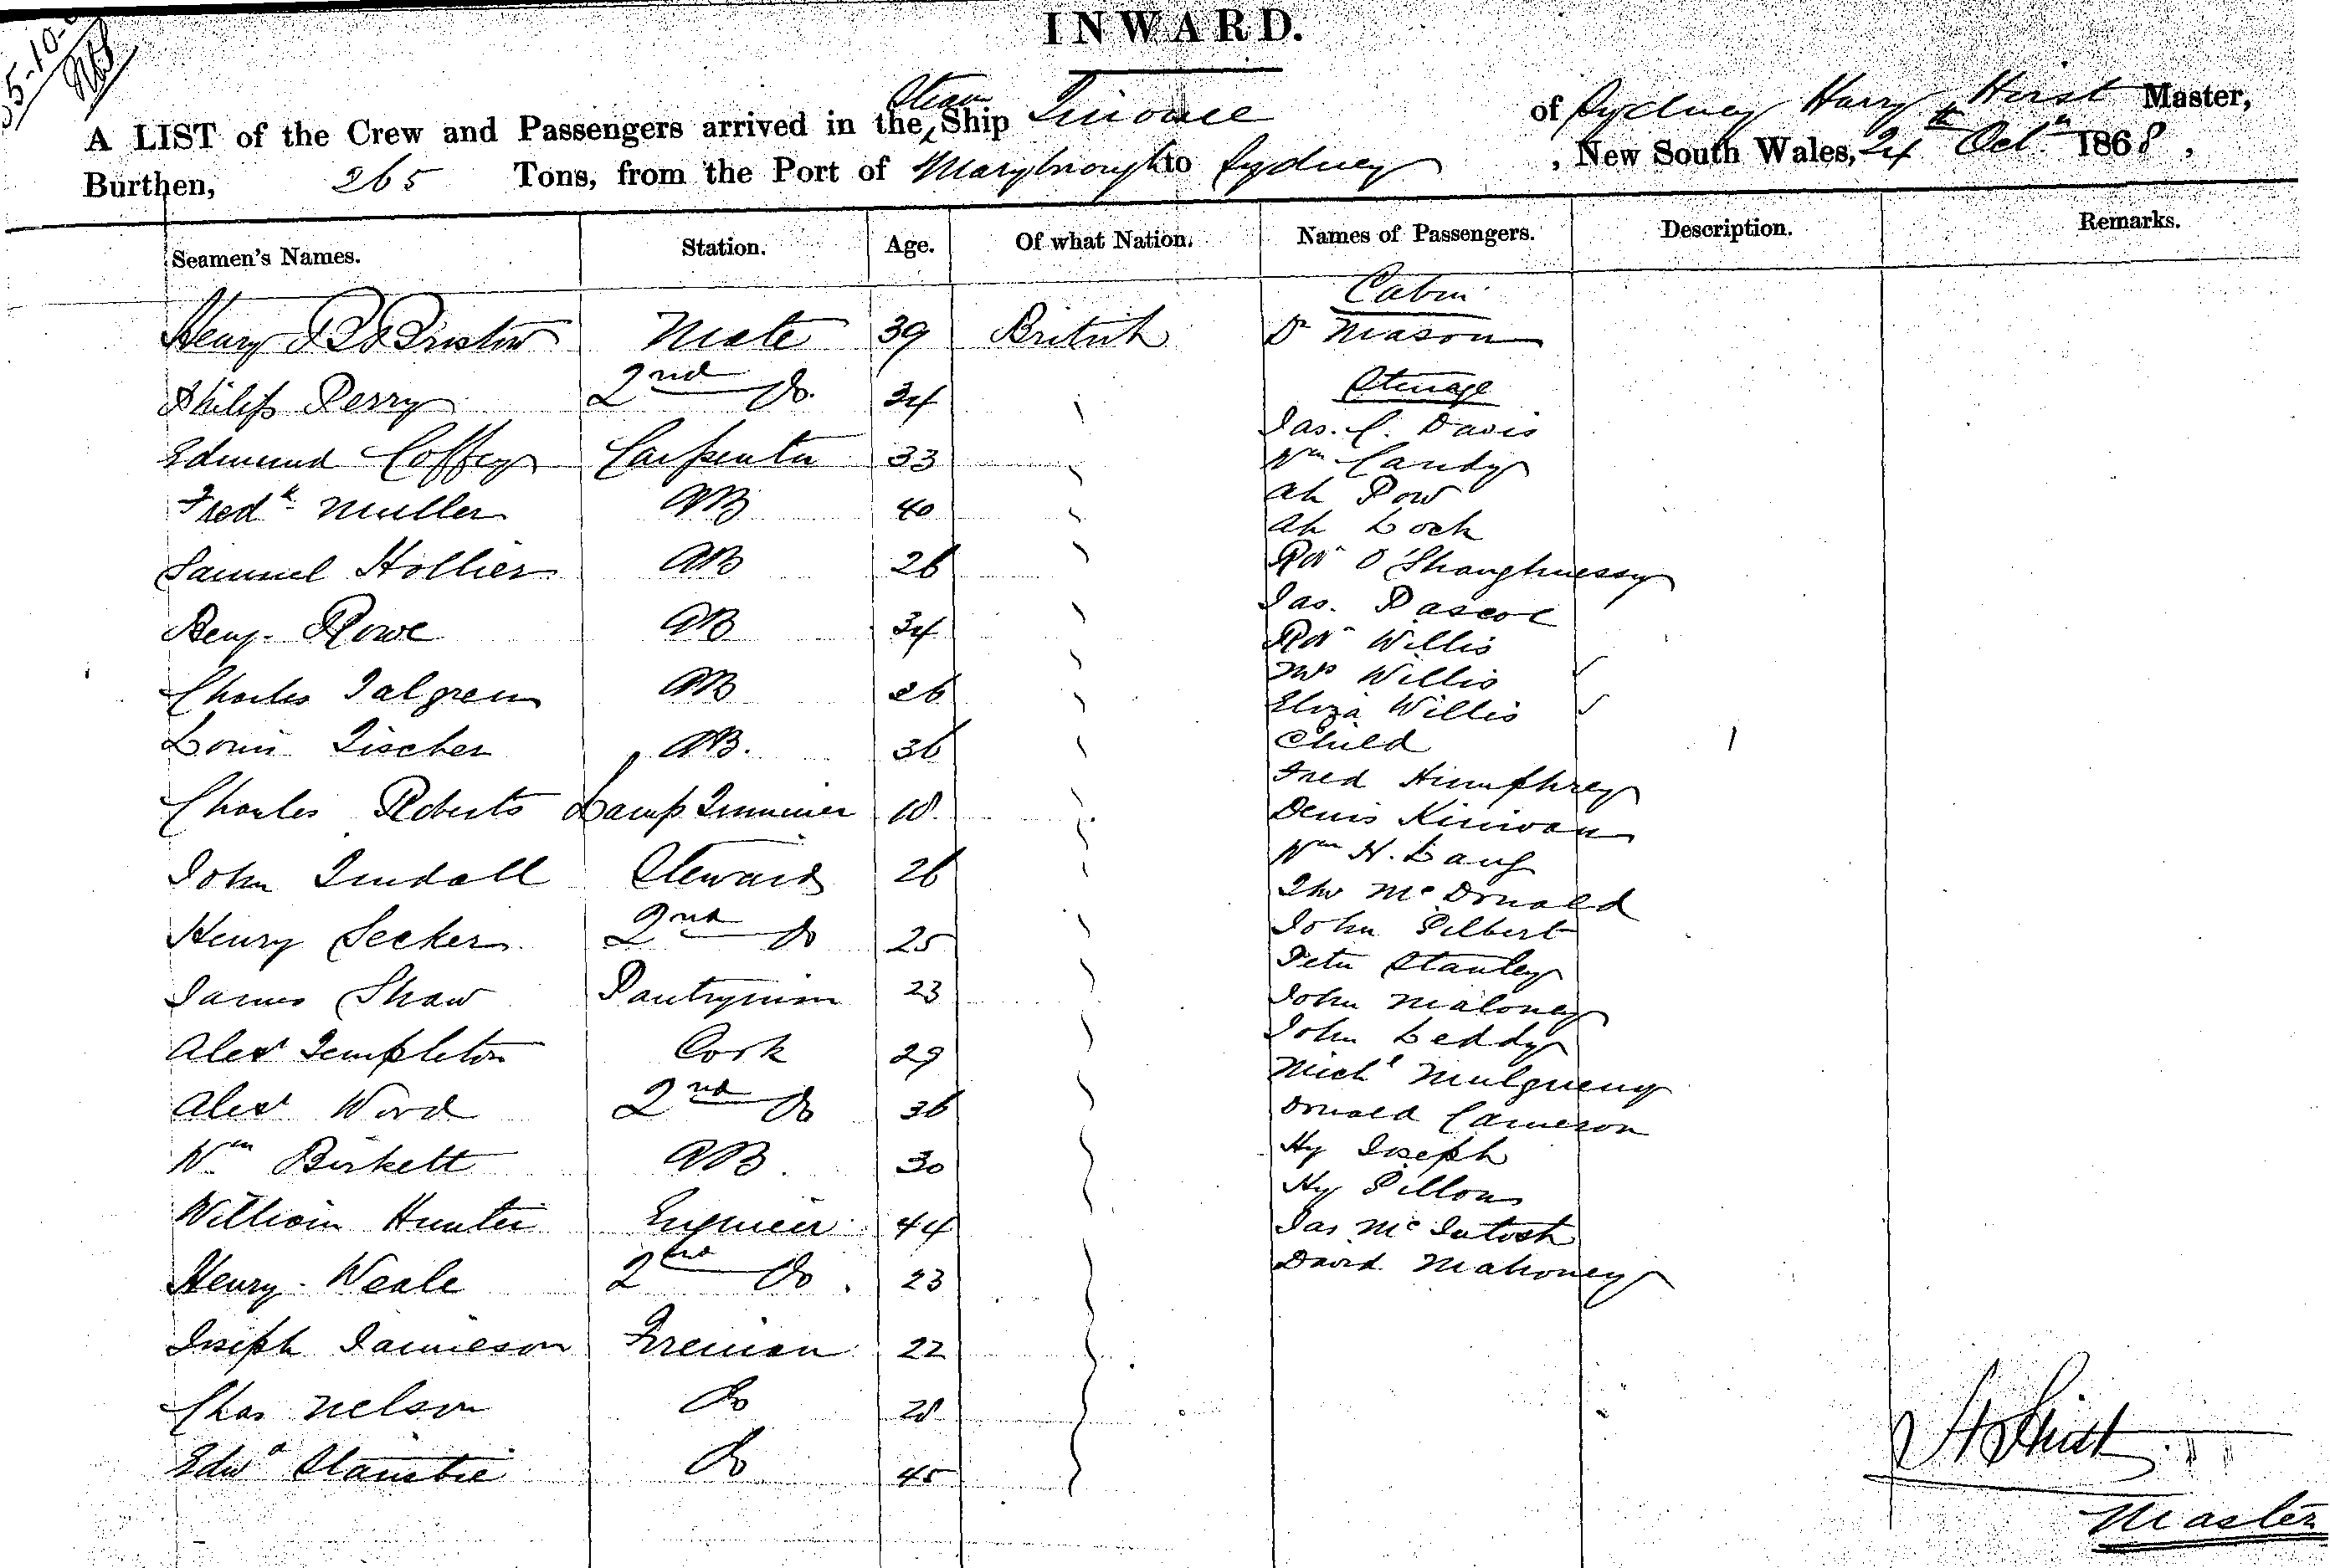 INWARD.
A LIST of the Crew and Passengers arrived in the Steam Ship Tinonee of Sydney Harry Hirst Master,
Burthen, 265 Tons, from the Port of Maryborough to Sydney, New South Wales, 24th Octr 1868,
Seamen's Names. Station. Age. Of what Nation. Names of Passengers. Description. Remarks.
Cabin
Henry Bristow Mate 39 British Dr Mason
Steerage
Philip Perry 2nd Do. 34
Jas. C. Davis
Edmund Coffey Carpenter 33
Wm Candy
Ah Pow
Fredk Muller AB 40
Ah Loch
Samuel Hollier AB 26
Rot O'Shaughnessy
Jas. Pascoe
Benj. Rowe AB 34
Rot Willis
Mrs Willis
Charles Talgren AB 26
Eliza Willis
Child
Louis Tischer AB. 36
Fred Humphrey
Charles Roberts Lamp Trimmer 18
Denis Kirwan
Wm H. Lang
John Tindall Steward 26
Thos McDonald
Henry Secker 2nd Do 25
John Gilbert
Peter Stanley
James Shaw Pantryman 23
John Maloney
John Leddy
Alexr Templeton Cook 29
Michl Mulgueny
Alexr Word 2nd Do 36
Donald Cameron
Wm Birkett AB 30
Hy Joseph
Hy Pillow
William Hunter Engineer 44
Jas McIntosh
Henry Weale 2nd Do. 23
David Mahoney
Joseph Jamieson Fireman 22
Chas Nelson Do 28
Edwd Do 45
H Hirst
Master